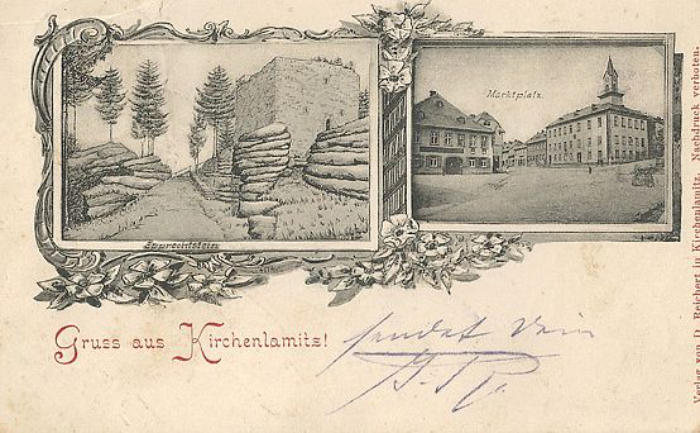 Marktplatz.
Epprechtstein
Gruss aus Kirchenlamitz!
sendet Dein
Verlag von D. Reichert in Kirchenlamitz. Nachdruck verboten.